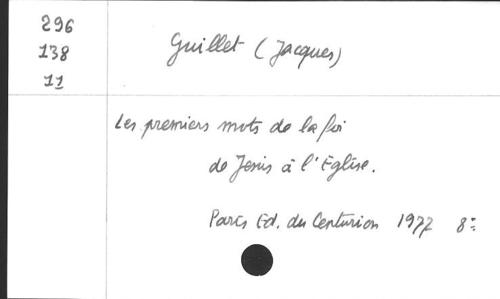 296
138
11
Guillet (Jacques)
Les premiers mots de la foi
de Jésus à l'Eglise.
Paris Ed. du Centurion 1977 8°